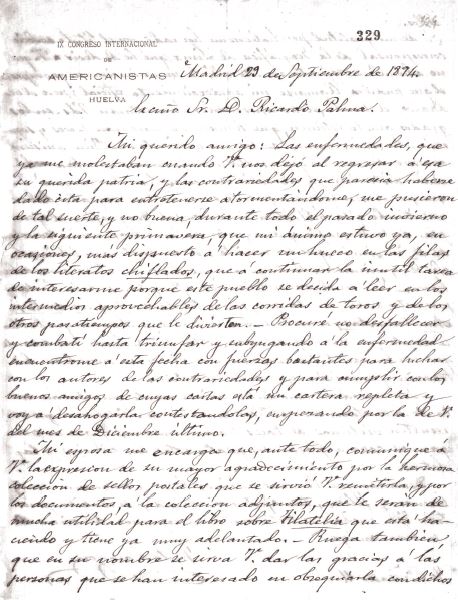 329
IX CONGRESO INTERNACIONAL
DE
AMERICANISTAS
HUELVA
Madrid 29 de Septiembre de 1894.
Sr. D. Ricardo Palma.
Mi querido amigo: Las enfermedades, que
ya me molestaban cuando V. nos dejó al regresar á esa
su querida patria, y las contrariedades que parecia haberse
dado cita para entretenerse atormentándome, me pusieron
de tal suerte, y no buena, durante todo el pasado invierno
y la siguiente primavera, que mi ánimo estuvo ya, en
ocasiones, mas dispuesto á hacer un hueco en las filas
de los literatos chiflados, que á continuar la inutil tarea
de interesarme porque este pueblo se decida á leer en los
intermedios aprovechables de las corridas de toros y de los
otros pasatiempos que le divierten. — Procuré no desfallecer
y combatí hasta triunfar y subyugando á la enfermedad
encuentrome á esta fecha con fuerzas bastantes para luchar
con los autores de las contrariedades y para cumplir con los
buenos amigos de cuyas cartas está mi cartera repleta y
voy á desahogarla contestandolas, empezando por la de V.
del mes de Diciembre último.
Mi esposa me encarga que, ante todo, comunique á
V. la expresion de su mayor agradecimiento por la hermosa
coleccion de sellos postales que se sirvió V. remitirla, y por
los documentos, á la coleccion adjuntos, que le serán de
mucha utilidad para el libro sobre Filatelia que está ha-
ciendo y tiene ya muy adelantado. — Ruega tambien,
que en su nombre se sirva V. dar las gracias á las
personas que se han interesado en obsequiarla con dichos